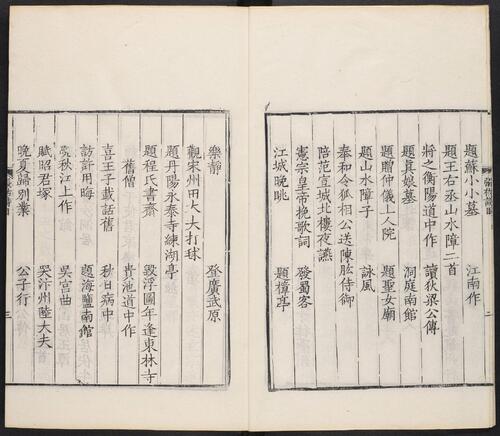 題蘇小小墓　江南作
題王右丞山水障二首
將之衡陽道中作　讀狄梁公傳
題真娘墓　洞庭南館
題贈仲儀上人院　題聖女廟
題山水障子　詠風
奉和令狐相公送陳肱侍御
陪范宣城北樓夜讌
憲宗皇帝挽歌詞　發蜀客
江城晚眺　題樟亭
二
樂靜　登廣武原
觀宋州田大夫打毬
題丹陽永泰寺練湖亭
題程氏書齋　毀浮圖年逢東林寺
舊僧　貴池道中作
喜王子載話舊　秋日病中
訪許用晦　題海鹽南館
晚秋江上作　吳宮曲
賦昭君塚　哭汴州陸大夫
晚夏歸別業　公子行
三